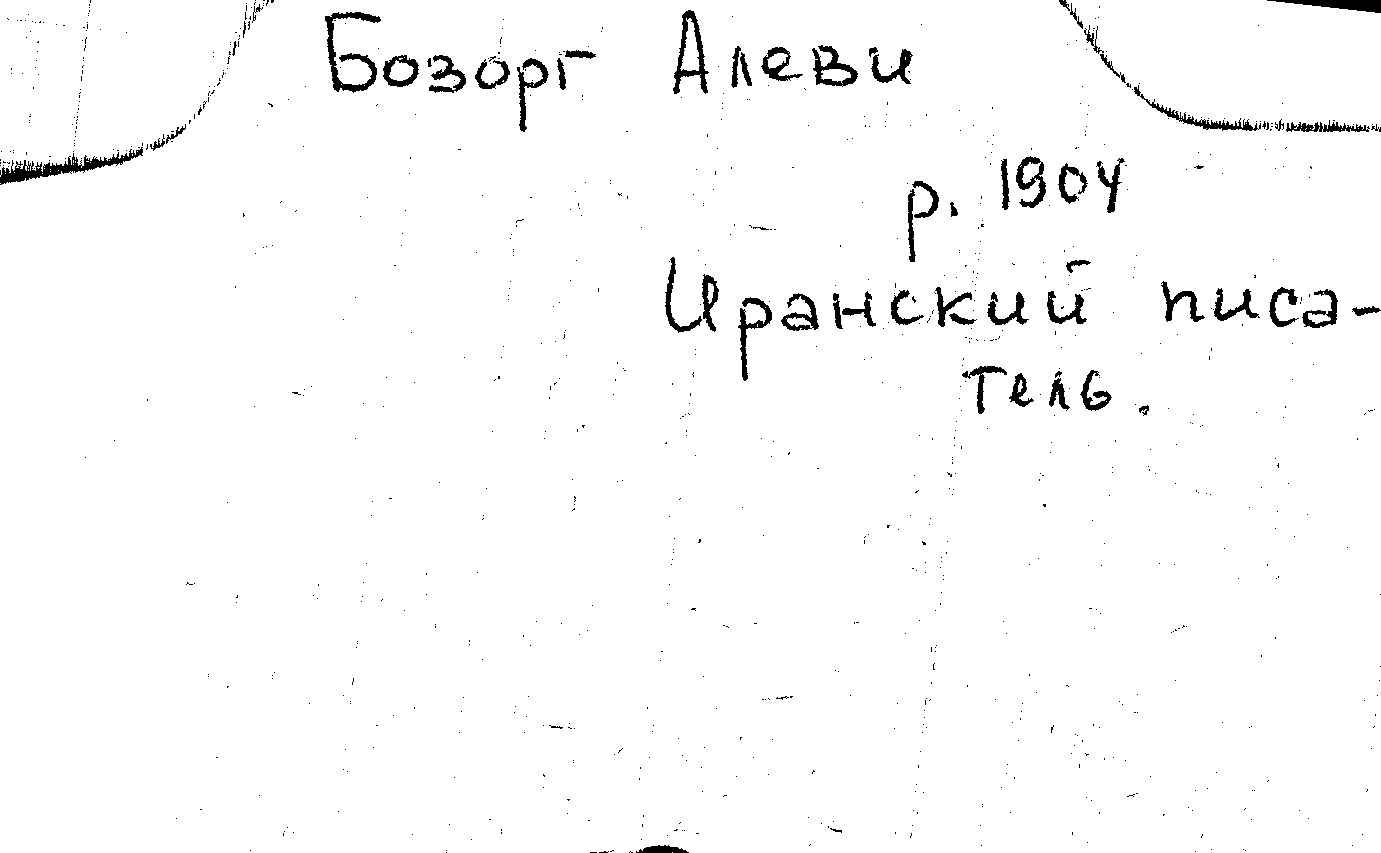 Бозорг Алеви
р. 1904
Иранский писа-
тель.